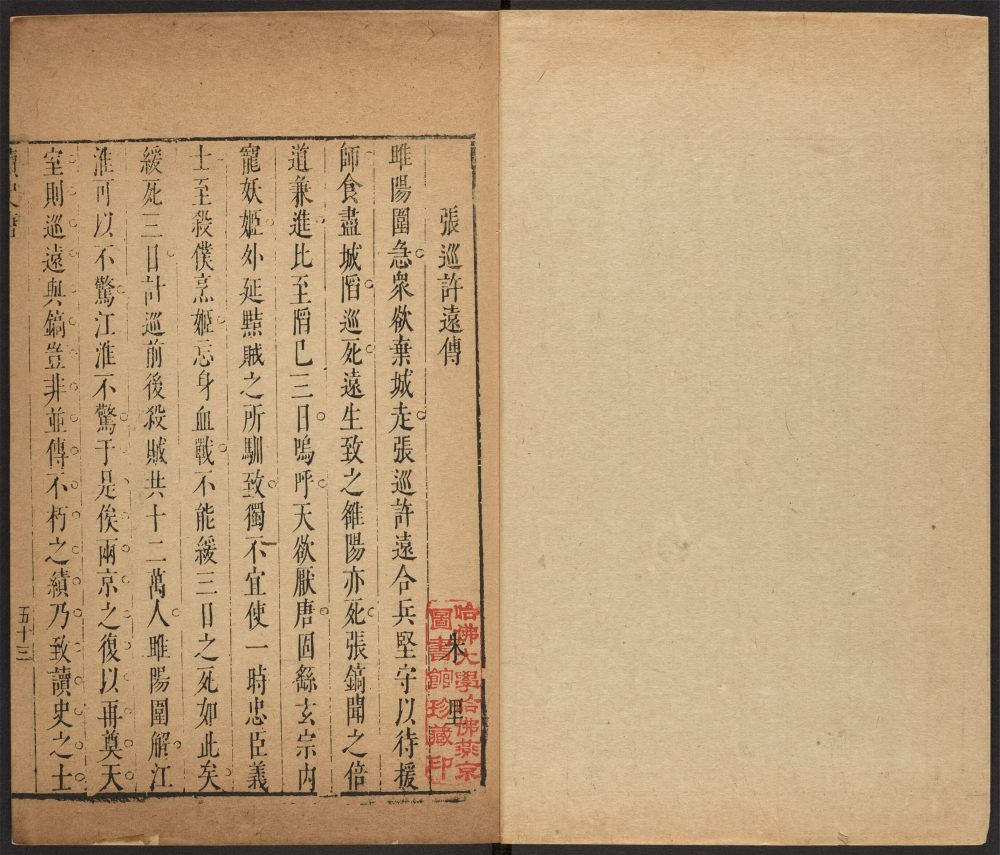 張巡許遠傳
朱 里
哈佛大學哈佛燕京
圖書館珍藏印
睢陽圍急衆欲棄城走張巡許遠合兵堅守以待援
師食盡城陷巡死遠生致之雒陽亦死張鎬聞之倍
道兼進比至陷已三日嗚呼天欲厭唐固繇玄宗内
寵妖姬外延黠賊之所馴致獨不宜使一時忠臣義
士至殺僕烹姬忘身血戰不能緩三日之死如此矣
緩死三日計巡前後殺賊共十二萬人睢陽圍解江
淮可以不驚江淮不驚于是俟兩京之復以再奠天
室則巡遠與鎬豈非並傳不朽之績乃致讀史之士
五十三